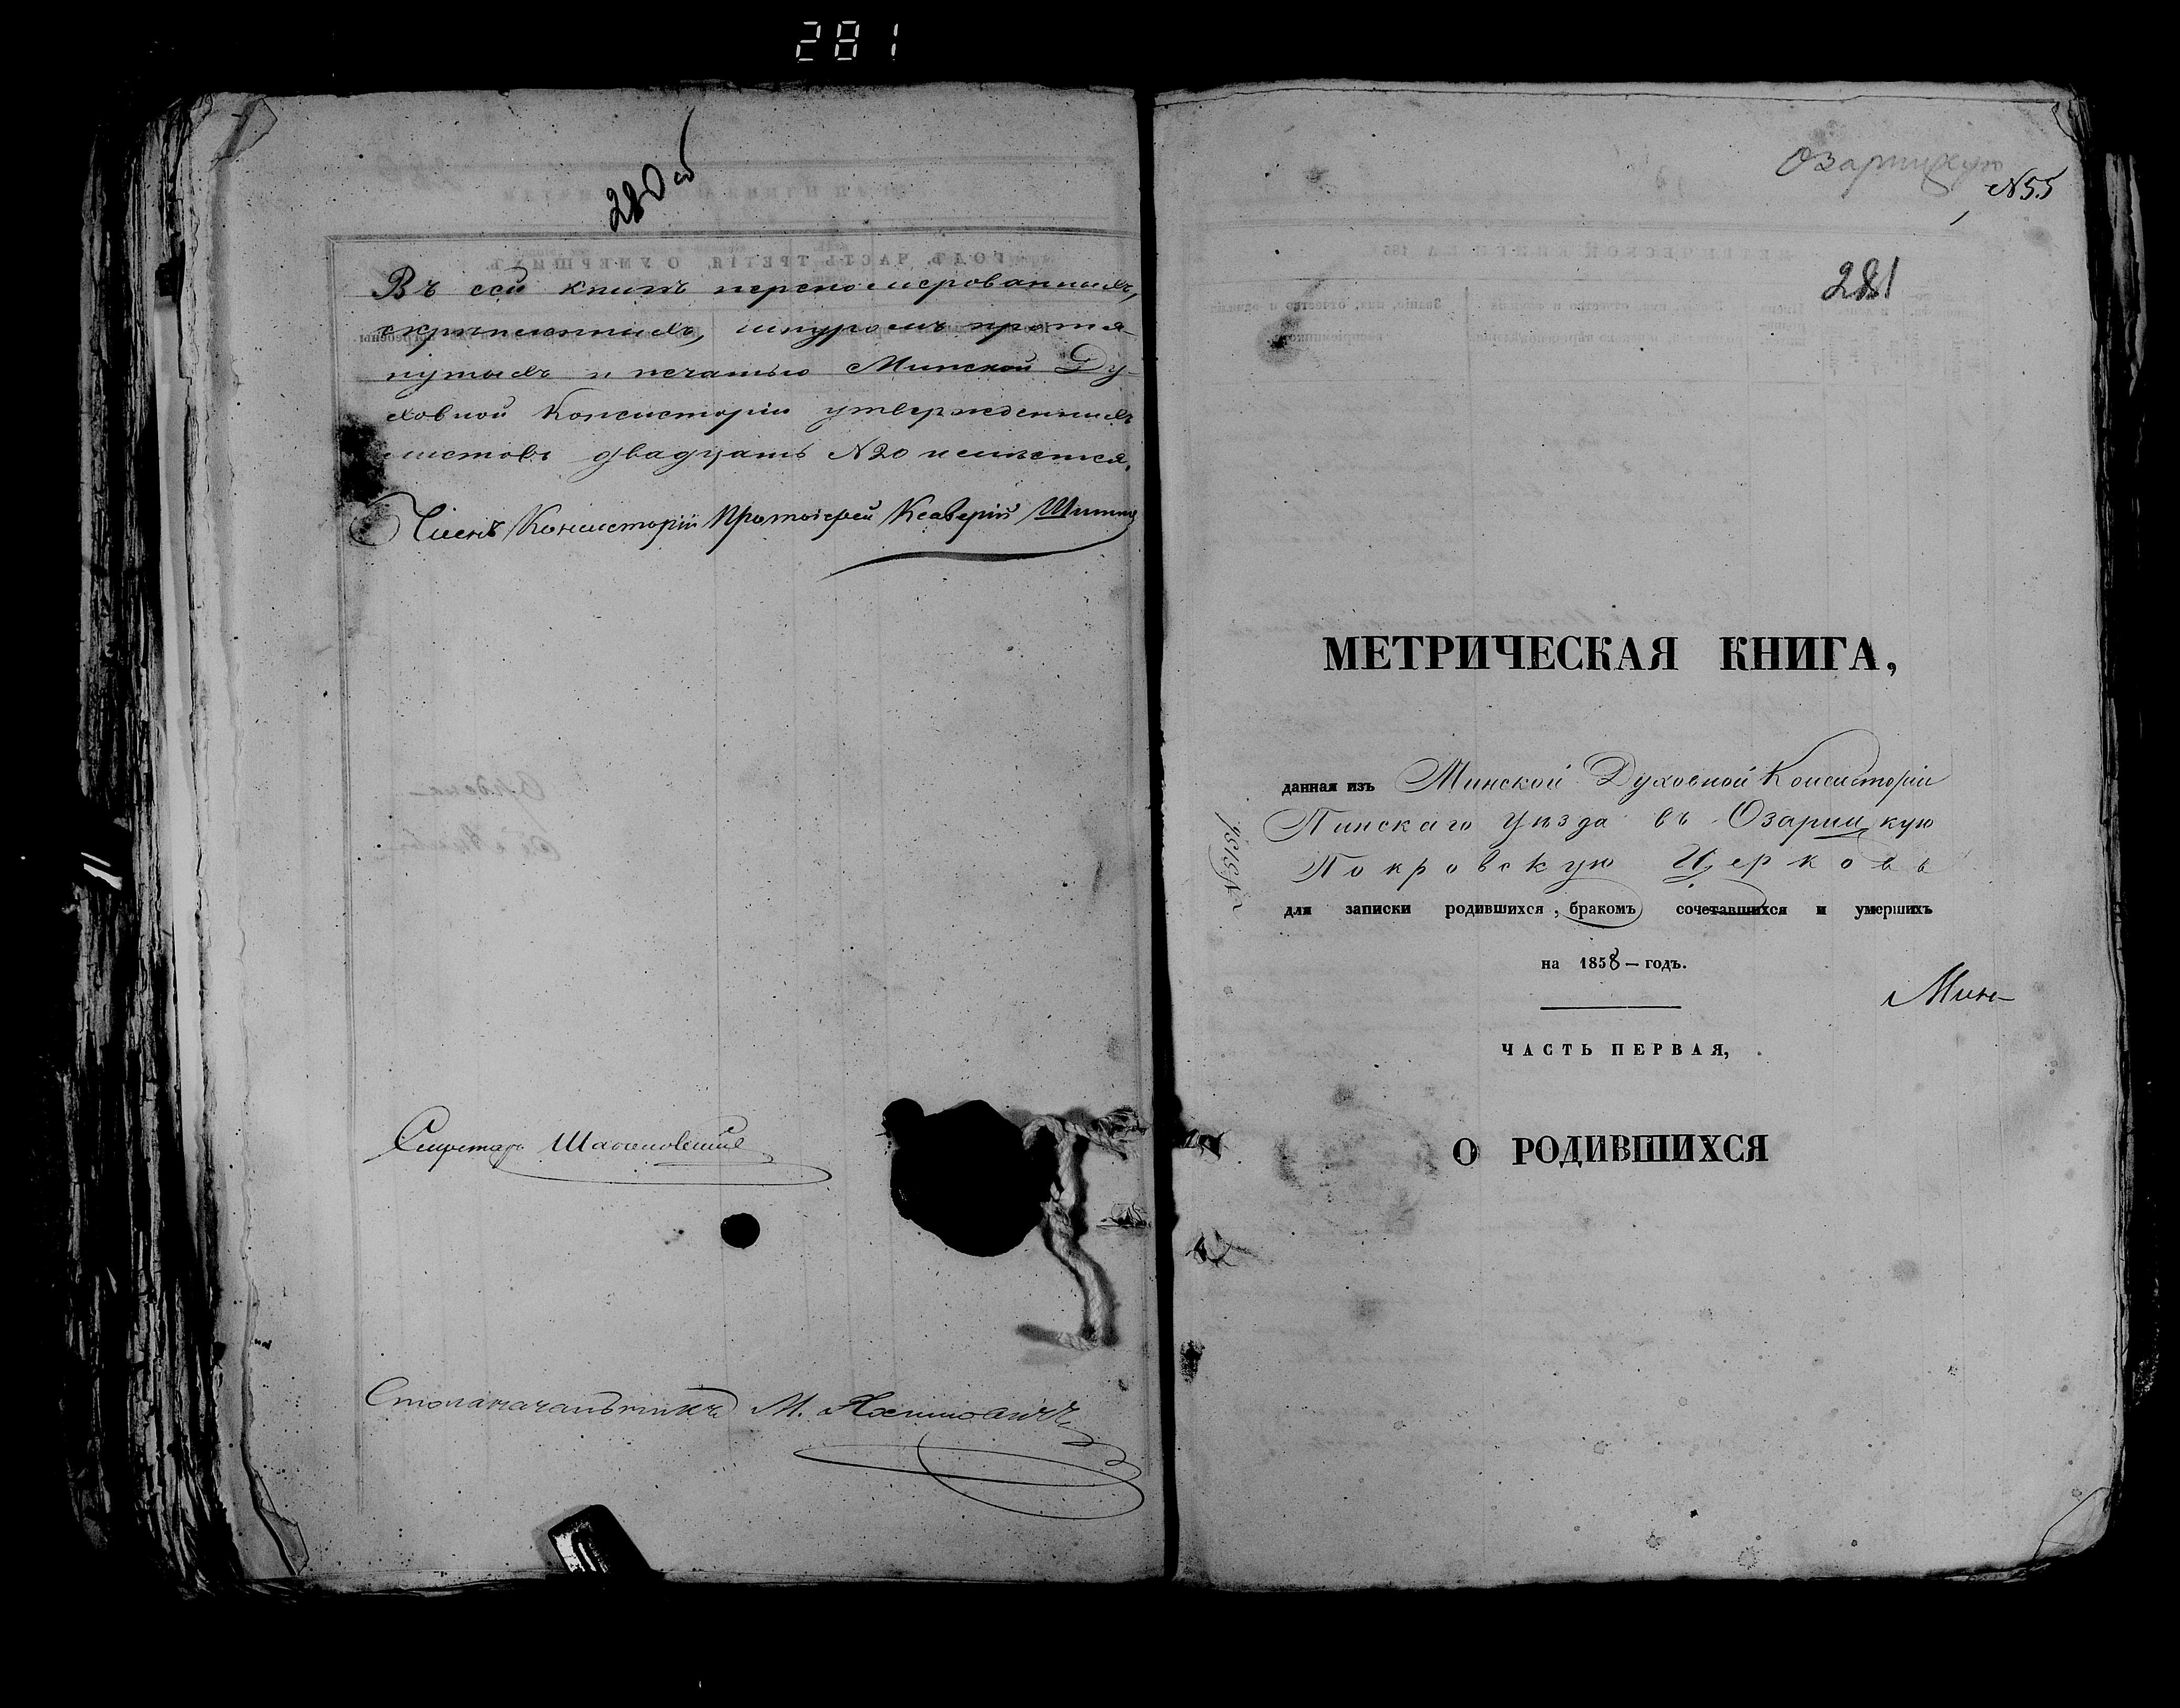 281
280 об
Въ сей книгѣ перенумерованныхъ,
скрѣпленныхъ, шнуромъ протя-
нутыхъ и печатью Минской Ду-
ховной Консисторіи утвержденныхъ
листовъ двадцать N 20 имѣется.
Членъ Консисторіи Протоіерей Ксаверій
Секретарь
Столоначальникъ М.
Озарицкую
N55
281
МЕТРИЧЕСКАЯ КНИГА,
данная изъ Минской Духовной Консисторіи
Пинскаго уѣзда въ Озарицкую
Покровскую Церковь
для записки родившихся, бракомъ сочетавшихся и умершихъ
на 1858 – годъ.
Мин-
ЧАСТЬ ПЕРВАЯ,
О РОДИВШИХСЯ